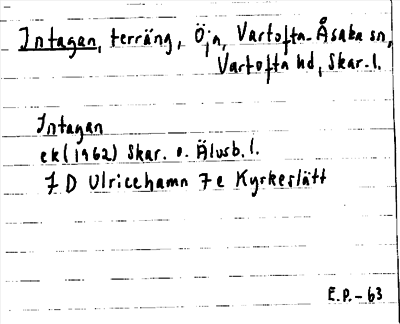 Intagan, terräng, Ö;a, Vartofta-Åsaka sn,
Vartofta hd, Skar. l.
Intagan
ek (1962) Skar. o. Älvsb. l.
7 D Ulricehamn 7 e Kyrkeslätt
E.P.-63